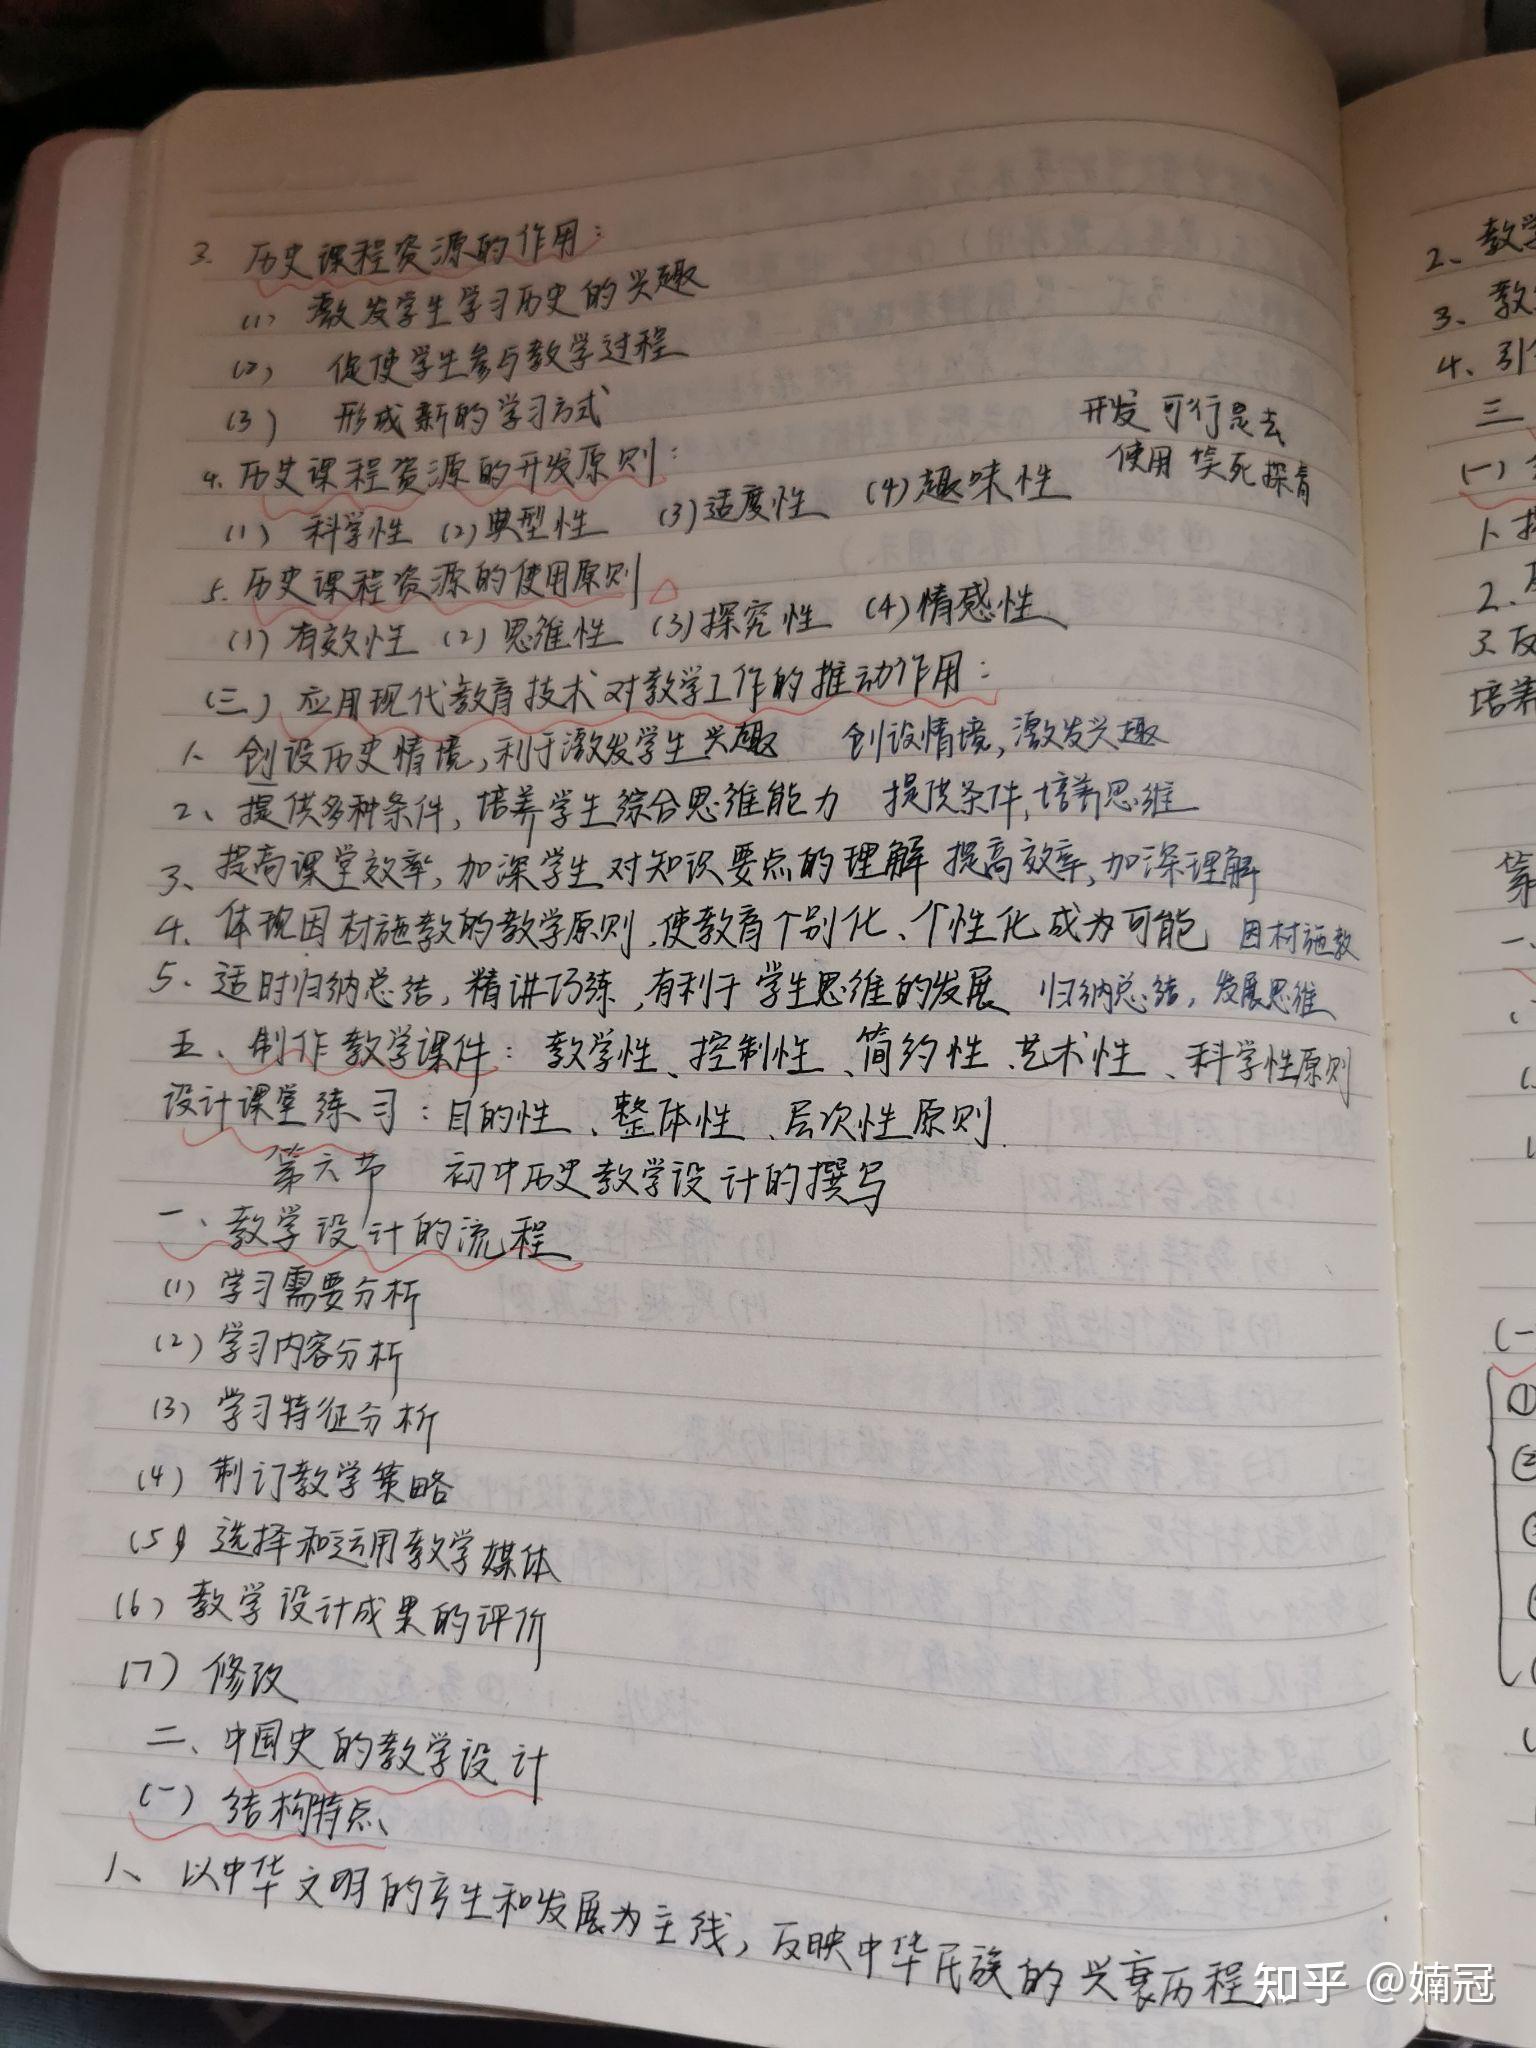 3. 历史课程资源的作用:
(1) 激发学生学习历史的兴趣
(2) 促使学生参与教学过程
(3) 形成新的学习方式
4. 历史课程资源的开发原则:
开发 可行是去
使用 笑死探青
(1) 科学性 (2) 典型性 (3) 适度性 (4) 趣味性
5. 历史课程资源的使用原则 △
(1) 有效性 (2) 思维性 (3) 探究性 (4) 情感性
(三) 应用现代教育技术对教学工作的推动作用:
1、创设历史情境,利于激发学生兴趣 创设情境,激发兴趣
2、提供多种条件,培养学生综合思维能力 提供条件,培养思维
3、提高课堂效率,加深学生对知识要点的理解 提高效率,加深理解
4、体现因材施教的教学原则,使教育个别化、个性化成为可能 因材施教
5、适时归纳总结,精讲巧练,有利于学生思维的发展 归纳总结,发展思维
五、制作教学课件:教学性、控制性、简约性、艺术性、科学性原则
设计课堂练习:目的性、整体性、层次性原则.
第六节 初中历史教学设计的撰写
一、教学设计的流程
(1) 学习需要分析
(2) 学习内容分析
(3) 学习特征分析
(4) 制订教学策略
(5) 选择和运用教学媒体
(6) 教学设计成果的评价
(7) 修改
二、中国史的教学设计
(一) 结构特点、
1、以中华文明的产生和发展为主线,反映中华民族的兴衰历程
2、教学
3、教
4、引
三
(一)
1、
2、
3、反
培养
第
一、
(一)
①
②
知乎 @婻冠